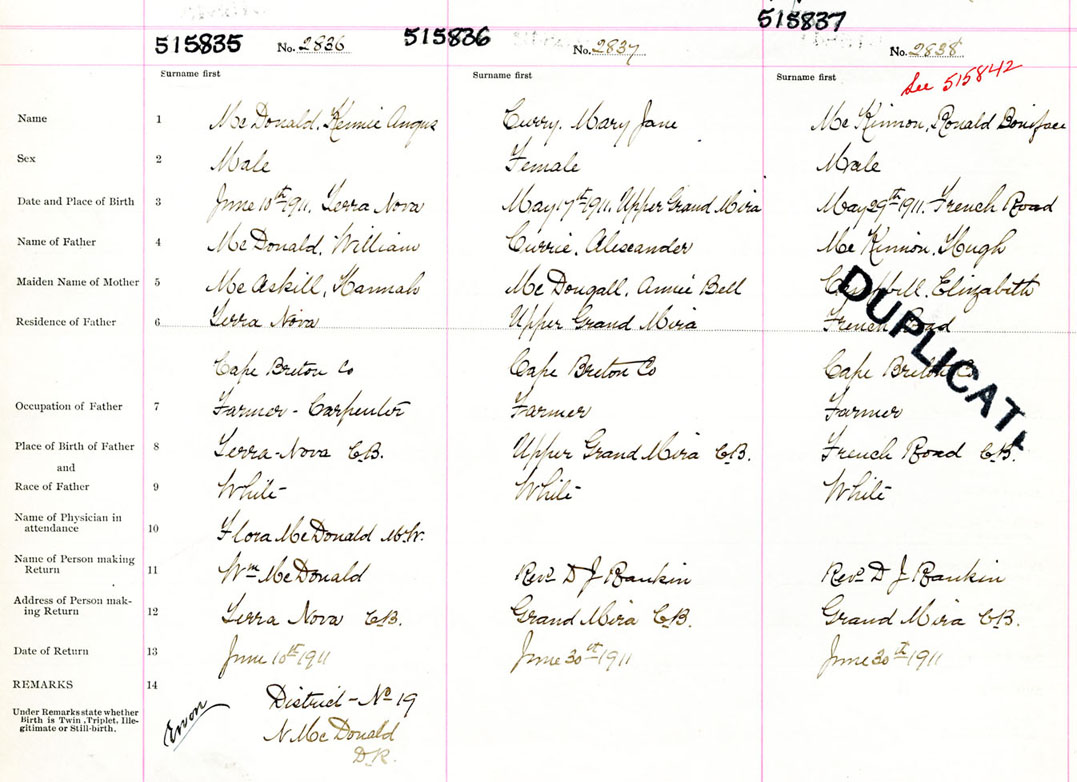 515835 No. 2836 515836 No. 2837 515837 No. 2838
Surname first Surname first Surname first See 515842
Name 1 McDonald, Kennie Angus Curry, Mary Jane McKinnon, Ronald Boniface
Sex 2 Male Female Male
Date and Place of Birth 3 June 10th 1911, Terra Nova May 17th 1911, Upper Grand Mira May 29th 1911. French Road
Name of Father 4 McDonald, William Currie, Alexander McKinnon, Hugh
Maiden Name of Mother 5 McAskill, Hannah McDougall, Annie Bell Campbell, Elizabeth
Residence of Father 6 Terra Nova Upper Grand Mira French Road
Cape Breton Co Cape Breton Co Cape Breton Co
DUPLICATE
Occupation of Father 7 Farmer - Carpenter Farmer Farmer
Place of Birth of Father 8 Terra-Nova C.B. Upper Grand Mira C.B. French Road C.B.
and
Race of Father 9 White White White
Name of Physician in
attendance 10 Flora McDonald M.W.
Name of Person making
Return 11 Wm McDonald Revd D J Rankin Revd D J Rankin
Address of Person mak-
ing Return 12 Terra Nova C.B. Grand Mira C.B. Grand Mira C.B.
Date of Return 13 June 10th 1911 June 30th 1911 June 30th 1911
REMARKS 14 District - No 19
Under Remarks state whether
Birth is Twin, Triplet, Ille-
gitimate or Still-birth.
N McDonald
D.R.